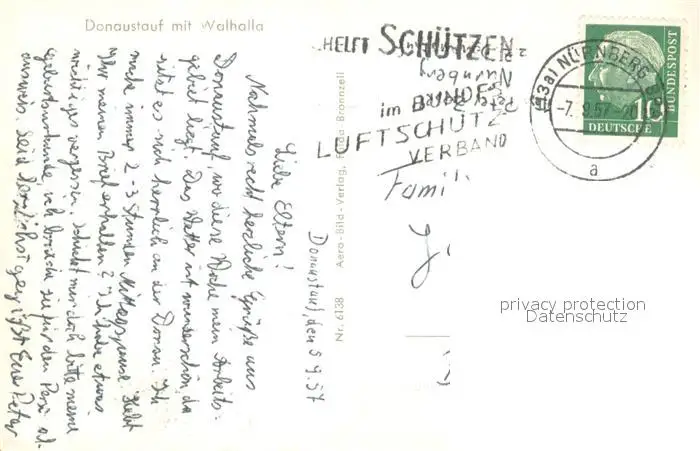 Donaustauf mit Walhalla
Donaustauf, den 5 9.57
Liebe Eltern!
Nochmals recht herzliche Grüße aus
Donaustauf, wo diese Woche mein Arbeits-
gebiet liegt. Das Wetter ist wunderschön, da
ist es noch herrlich an der Donau. Ich
mache immer 2-3 Stunden Mittagspause. Habt
Ihr meinen Brief erhalten? Ich habe etwas
wichtiges vergessen. Schickt mir doch bitte meine
Geburtsurkunde, ich brauche sie für den
ausweis. Seid herzlichst gegrüßt Euer Peter
Nr. 6138 Aero-Bild-Verlag, Fulda-Bronnzell
HELFT SCHÜTZEN
im BUNDES
LUFTSCHUTZ
VERBAND
Nürnberg
(13a) NÜRNBERG
-7.9.57
a
10
DEUTSCHE
BUNDESPOST
Famil
privacy protection
Datenschutz